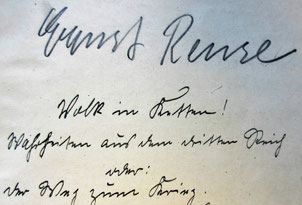 Ernst Reuse
Volk in Ketten!
Wahrheiten aus dem dritten Reich
oder:
der Weg zum Krieg.